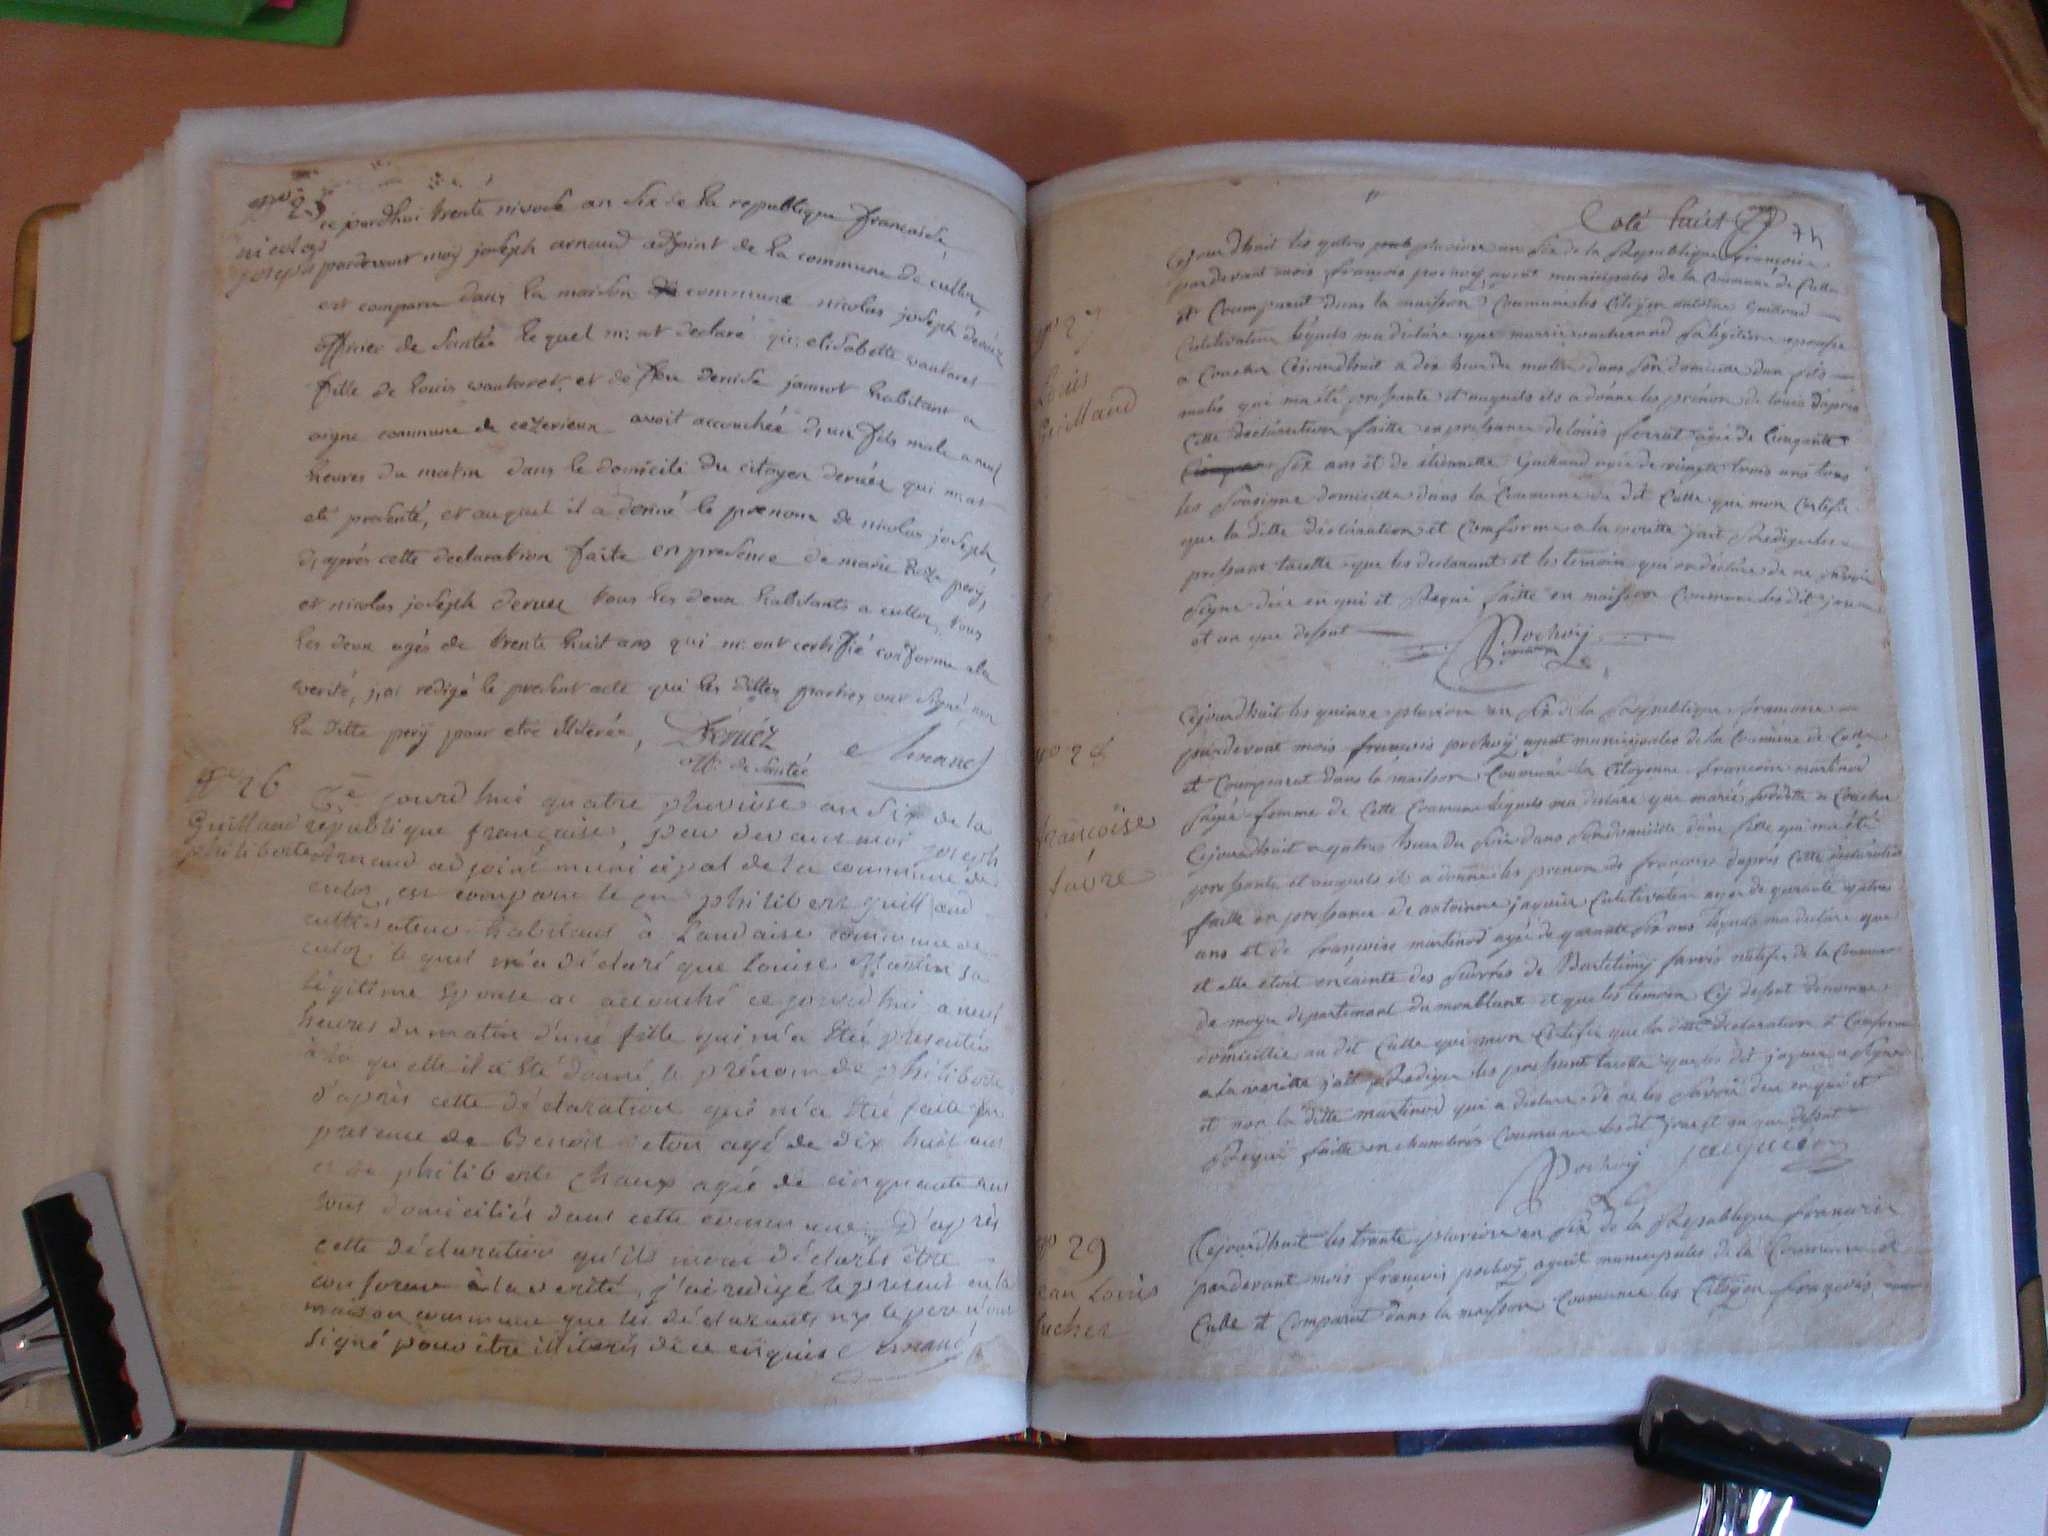 nº 25
nicolas
joseph
ce jourdhui trente nivose an six de la republique francaise
pardevant moy joseph arnaud adjoint de la commune de culloz
est comparu dans la maison commune nicolas joseph deruéz
officier de santée lequel m'at declaré que elisabette vautaret
fille de louis vautaret et de feu denise jannot habitant a
aigne commune de cezerieux avoit accouchée d'un fils male a neuf
heures du matin dans le domicile du citoyen deruéz qui m'at
eté presenté, et auquel il a donné le prenom de nicolas joseph,
d'aprés cette declaration faite en presence de marie pery,
et nicolas joseph deruez tous les deux habitants a culloz, tous
les deux agés de trente huit ans qui m'ont certiffié conforme a la
verité, j'ai redigé le present acte que les dittes parties ont signé, non
la ditte pery pour etre illiterée,
Déruéz
off. de santée
Arnaud
nº 26
Guilland
philiberte
Ce jourd'hui quatre pluviose an six de la
république française, par devant moi joseph
Arnaud adjoint municipal de la commune de
culoz, est comparu le cn philibert guilland
cultivateur habitant à Landaise commune de
culoz, le quel m'a déclaré que Louise Martin sa
légitime épouse a accouché ce jourd'hui a neuf
heures du matin d'une fille qui m'a été présentée
à la quelle il a été donné le prénom de philiberte
d'après cette déclaration qui m'a été faite en
présence de Benoit agé de dix huit ans
et de philiberte Chaux agée de cinquante ans
tous domiciliés dans cette commune. D'après
cette déclaration qu'ils m'ont déclaré être
conforme à la vérité, j'ai rédigé le présent en la
maison commune que les déclarants ny le père n'ont
signé pour être illiterés de ce enquis Arnaud
Coté huit
74
nº 27
Louis
Guilland
Cejourdhuit les quatre pluviose an six de la Republique françoise
pardevant mois françois pochoÿ agent municipales de la Coumune de Culle
et Coumparut dans la maisson Coumune les Citoÿen Guilland
Culativateur lequels ma declare que marrie sa legitime epousse
a Coucher Cejourdhuit a dix heur du matin dans son domicile dun fils
males qui ma été pressante et auquels ils a donne les prénon de louis daprés
Cette declaration faitte en pressance de louis ferrut agée de Cinquante
six ans et de étiennette Guilland agée de vingte trois ans tous
les sousigne domicillie dans la Coumune du dit Culle qui mon Certifie
que la ditte declaration et Comforme a la veritte jait Redige les
pressant lacette que les declarant et les temoin qui on déclare de ne savoir
signe dece en qui et Requi faitte en maisson Coumune les dit jour
et an que dessut
Pochoÿ
nº 28
françoise
favre
Cejourdhuit les quinze pluviose an six de la Republique francoise
pardevant mois francois pochoÿ agent municipales de la Coumune de Culle
et Coumparut dans la maison Coumune la Citoyenne francoise martinod
sage femme de cette Coumune lequels ma declare que marie a Coucher
Cejourdhuit a quatre heur du soir dans son domicile dune fille qui ma été
pressante et auquels il a donne les prenom de françoise daprés Cette declaration
faitte en pressance de antoinne jaquin Culativateur agee de quarante quatres
ans et de françoise martinod agée de quarante six ans lequels ma declare que
et elle etoit enceinte des euvres de Bartelemy favres natifes de la Coumune
de departement du monblant et que les temoin Cÿ dessut denomme
domicillie au dit Culle qui mon Certifie que la ditte declaration et Comforme
a la veritte jait Redige les pressant lacette que les dit jaquin a signe
et non la ditte martinod qui a declare de ne les savoir dece en qui et
Requi faitte en chambres Coumune les dit jour et an que dessut
Pochoÿ jacquin
nº 29
jean Louis
Cejourdhuit les trante pluviose an six de la Republique francoise
pardevant mois françois pochoÿ agent municipales de la Coumune de
Culle et Comparut dans la maisson Coumune les Citoÿen françois